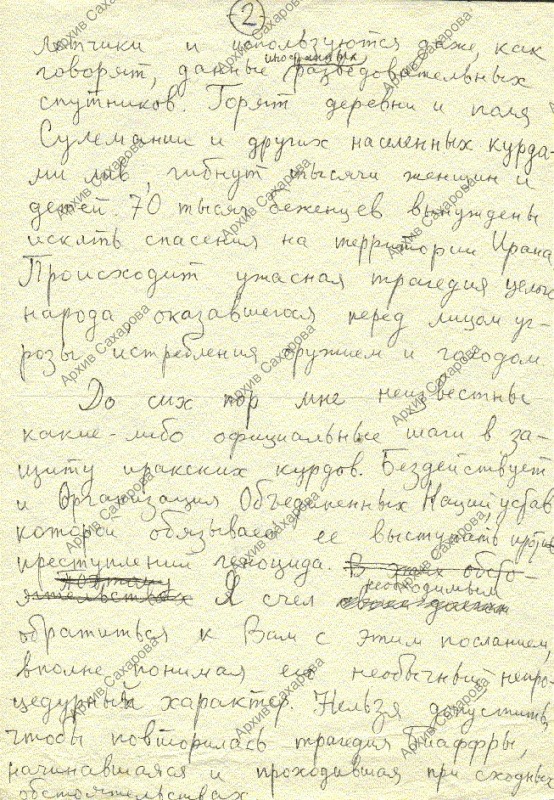 2
летчики и используются даже, как
иностранных
говорят, данные разведовательных
спутников. Горят деревни и поля
Сулемании и других населенных курда-
ми лив, гибнут тысячи женщин и
детей. 70 тысяч беженцев вынуждены
искать спасения на территории Ирана
Происходит ужасная трагедия целого
народа оказавшегося перед лицом уг-
розы истребления оружием и голодом
До сих пор мне неизвестны
какие-либо официальные шаги в за-
щиту иракских курдов. Бездействует
и Организация Объединенных Наций устав
которой обязывает ее выступать против
преступлений геноцида. В этих обсто-
поэтому необходимым
ятельствах Я счел своим долгом
обратиться к Вам с этим посланием,
вполне понимая его необычный непро-
цедурный характер. Нельзя допустить,
чтобы повторилась трагедия Биаффры,
начинавшаяся и проходившая при сходных
обстоятельствах.
Архив Сахарова